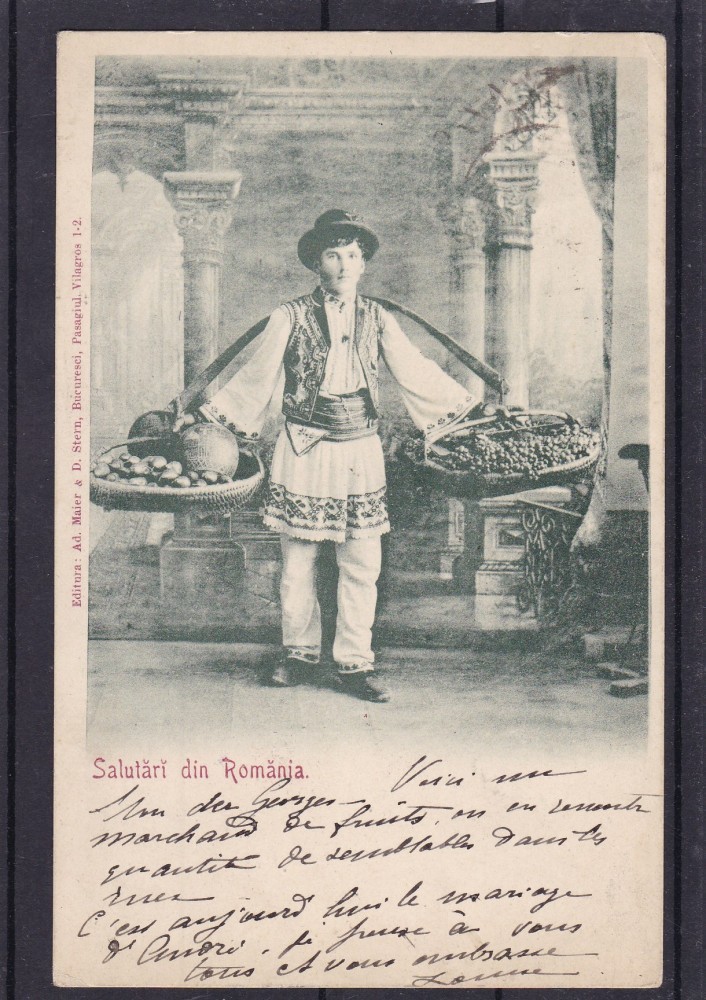 Editura: Ad. Maier & D. Stern, Bucuresci, Pasagiul. Vilagros 1-2.
Salutări din România.
Voici un
Georges
marchand de fruits, on en rencontre
quantité de semblables dans les
rues
C'est aujourd'hui le mariage
d'André, je pense à vous
tous et vous embrasse